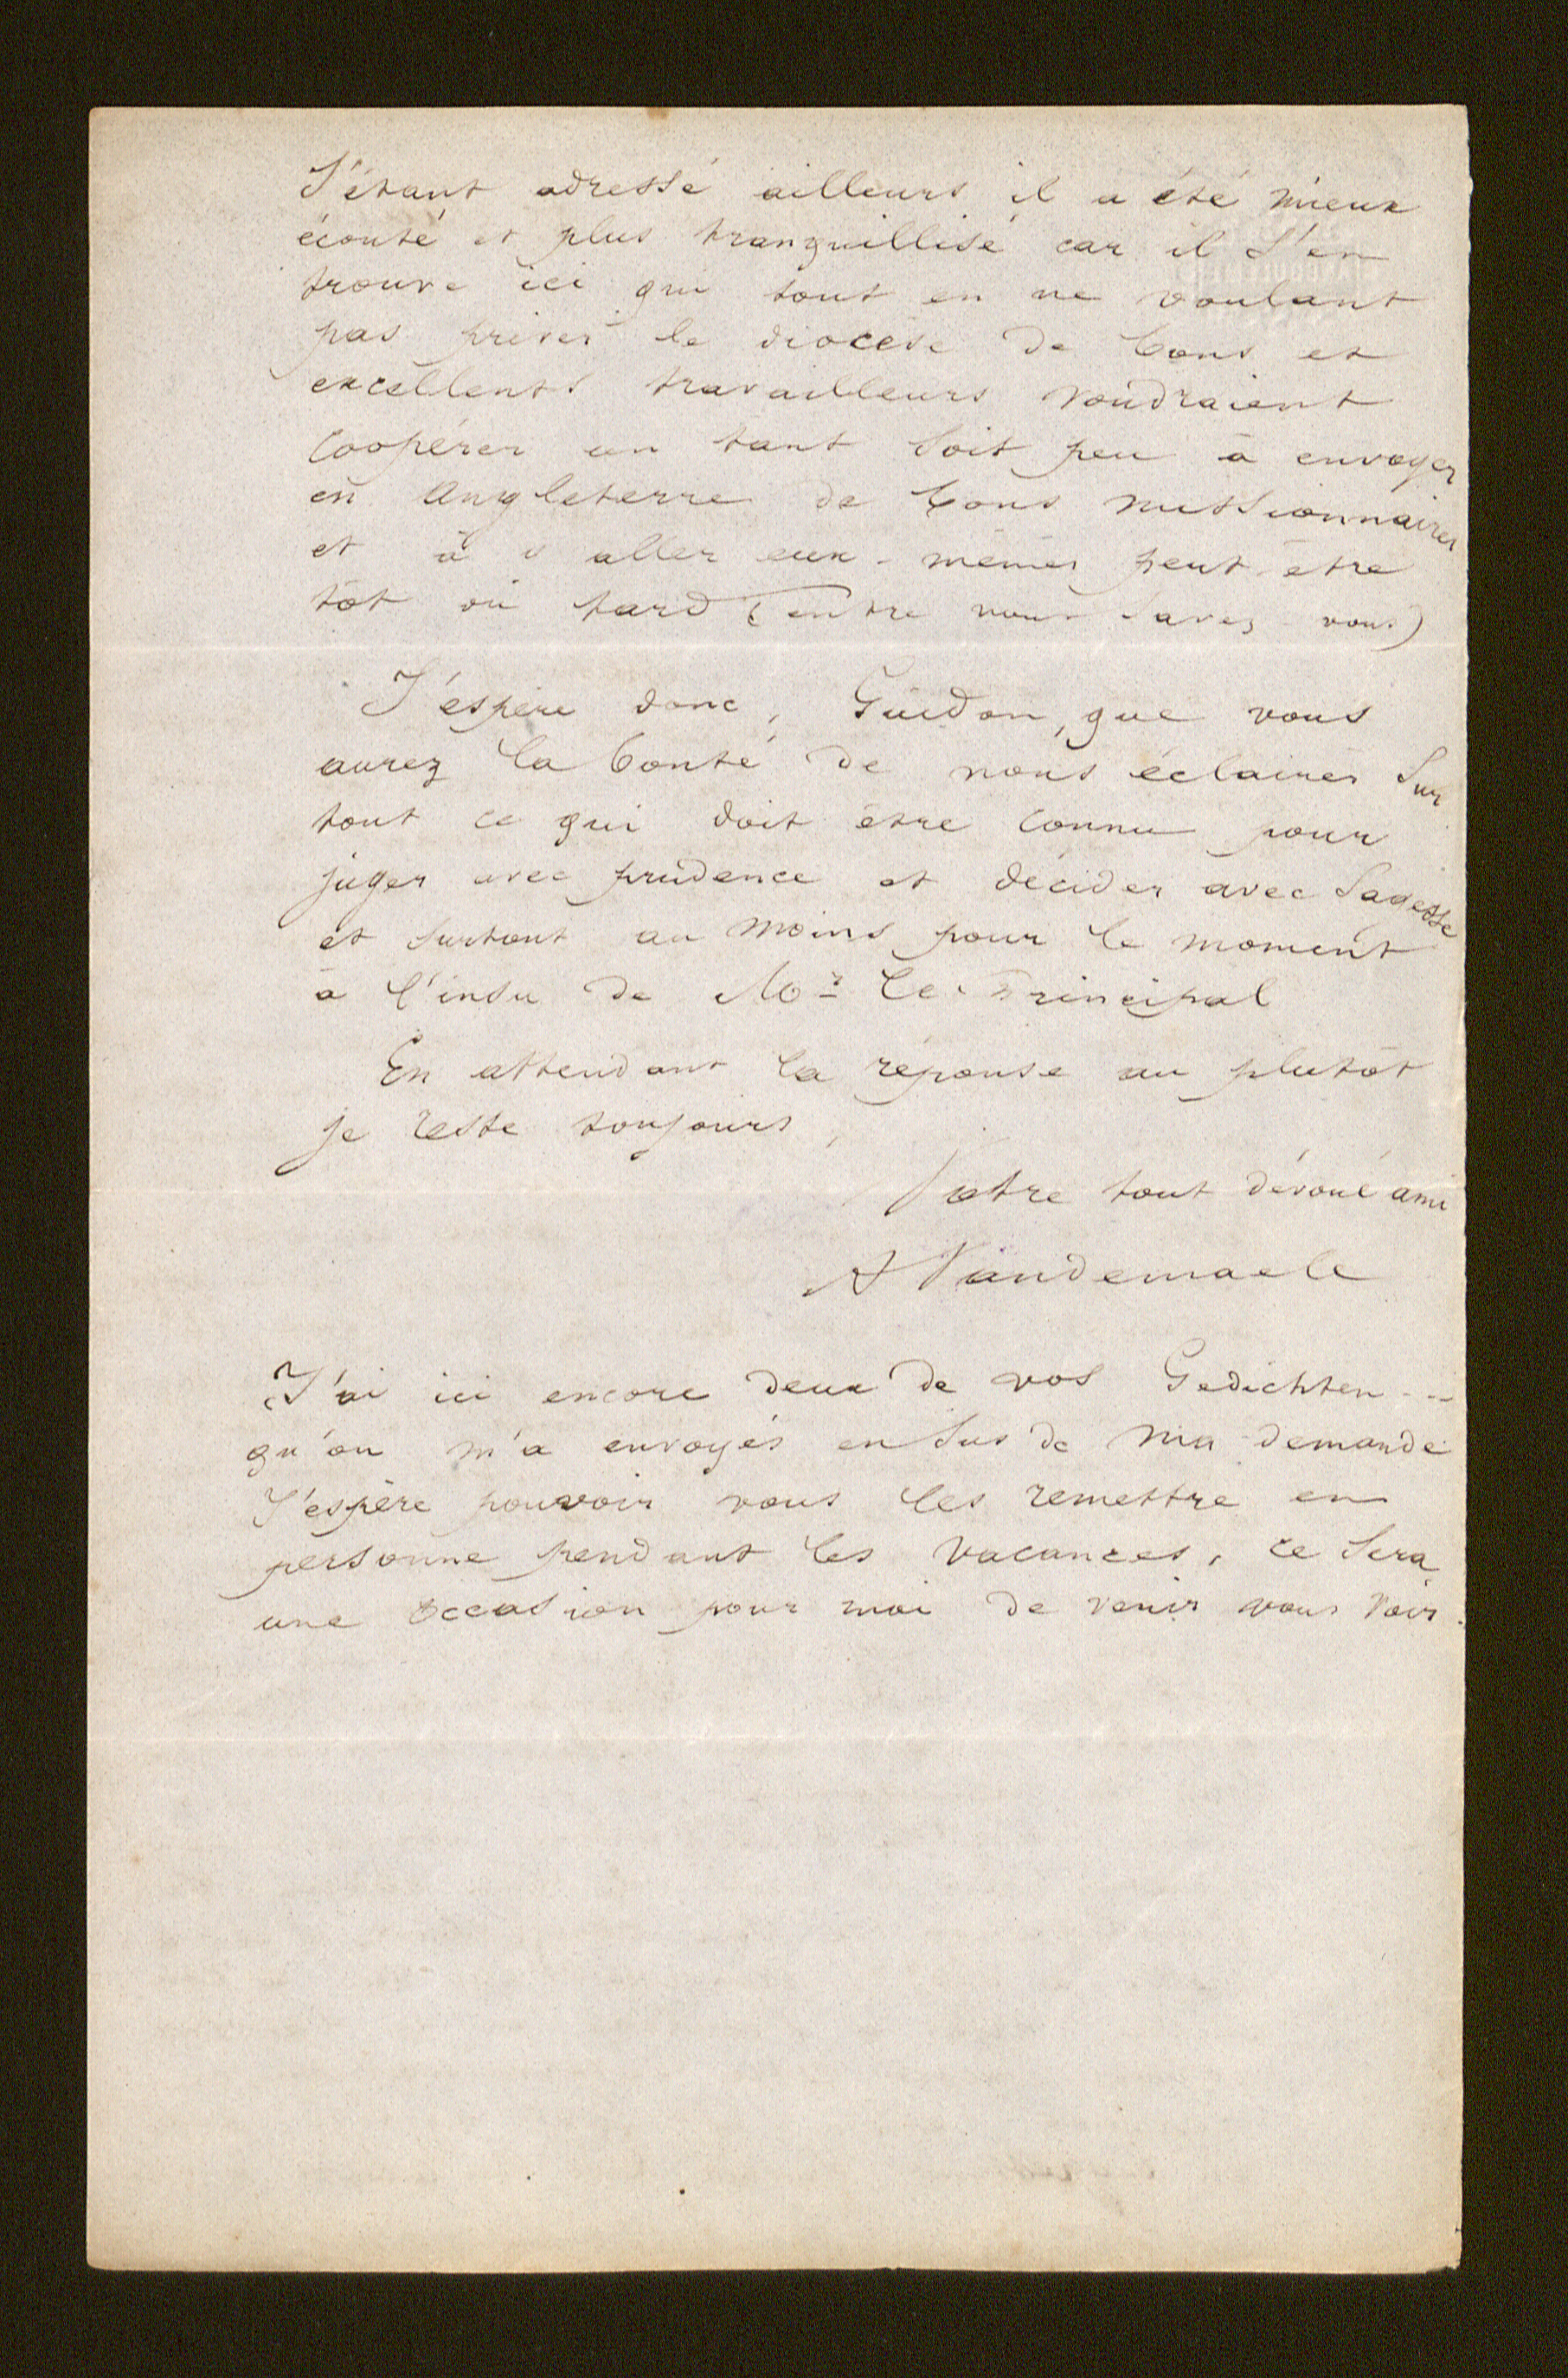 S'étant adressé ailleurs il a été mieux
écouté et plus tranquillisé car il s'en
trouve ici qui tout en ne voulant
pas priver le diocèse de bons et
excellents travailleurs voudraient
coopérer un tant soit peu à envoyer
en Angleterre de bons missionnaires
et à y aller eux-mêmes peut-être
tôt ou tard (entre nous savez-vous)
J'espère donc, Guidon, que vous
aurez la bonté de nous éclairer sur
tout ce qui doit être connu pour
juger avec prudence et décider avec sagesse
et surtout au moins pour le moment
à l'insu de Mr le Principal
En attendant la réponse au plutôt
je reste toujours,
Votre tout dévoué ami
A Vandemaele
J'ai ici encore deux de vos Gedichten ...
qu'on m'a envoyés en sus de ma demande
J'espère pouvoir vous les remettre en
personne pendant les vacances, ce sera
une occasion pour moi de venir vous voir.